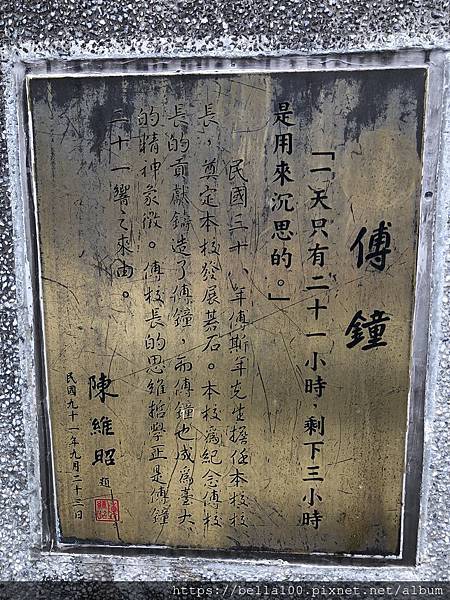 傅鐘
「一天只有二十一小時，剩下三小時
是用來沉思的。」
民國三十八年傅斯年先生擔任本校校
長，奠定本校發展基石。本校為紀念傅校
長的貢獻鑄造了傅鐘，而傅鐘也成為臺大
的精神象徵。傅校長的思維哲學正是傅鐘
二十一響之來由。
陳維昭 題
民國九十一年九月二十三日
https://bella100.pixnet.net/album